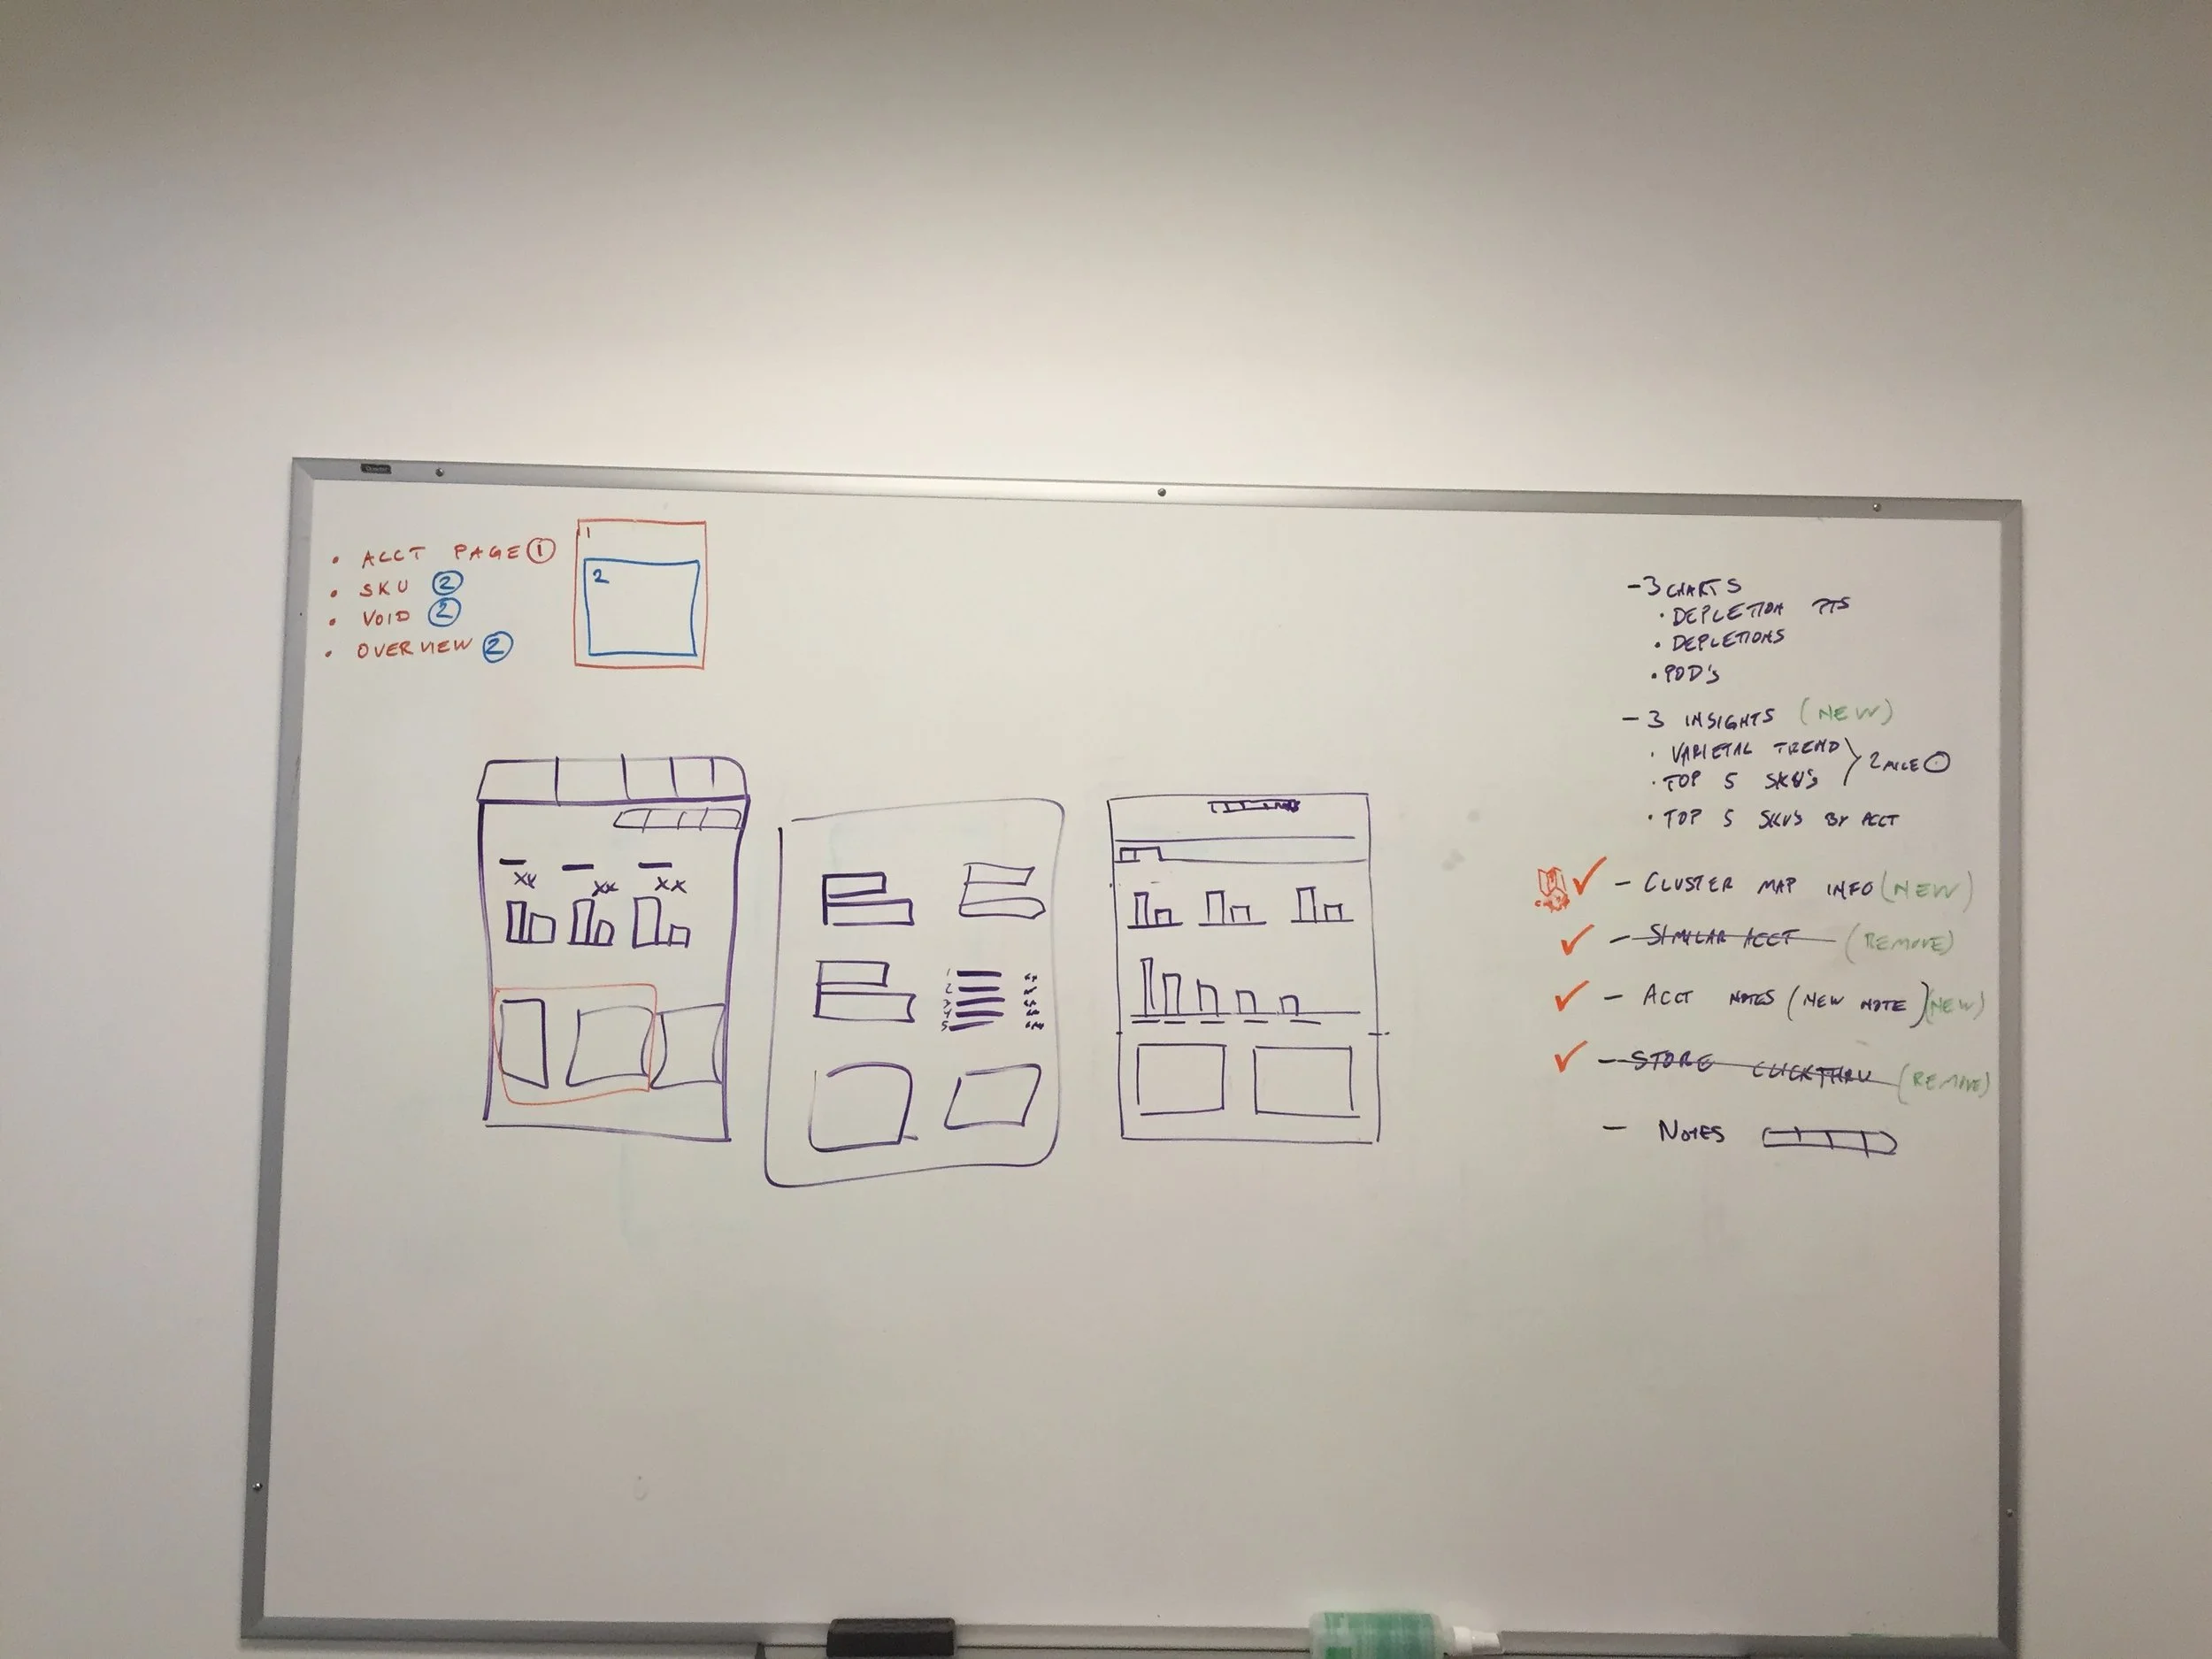 • ACCT PAGE ①
• SKU ②
• VOID ②
• OVERVIEW ②
1
2
XX XX XX
1
2
3
4
5
- 3 CHARTS
• DEPLETION PTS
• DEPLETIONS
• POD'S
- 3 INSIGHTS (NEW)
• VARIETAL TREND
• TOP 5 SKU'S
• TOP 5 SKU'S BY ACCT
✓ - CLUSTER MAP INFO (NEW)
✓ - SIMILAR ACCT (REMOVE)
✓ - ACCT NOTES (NEW NOTE) (NEW)
✓ - STORE CLICKTHRU (REMOVE)
- NOTES